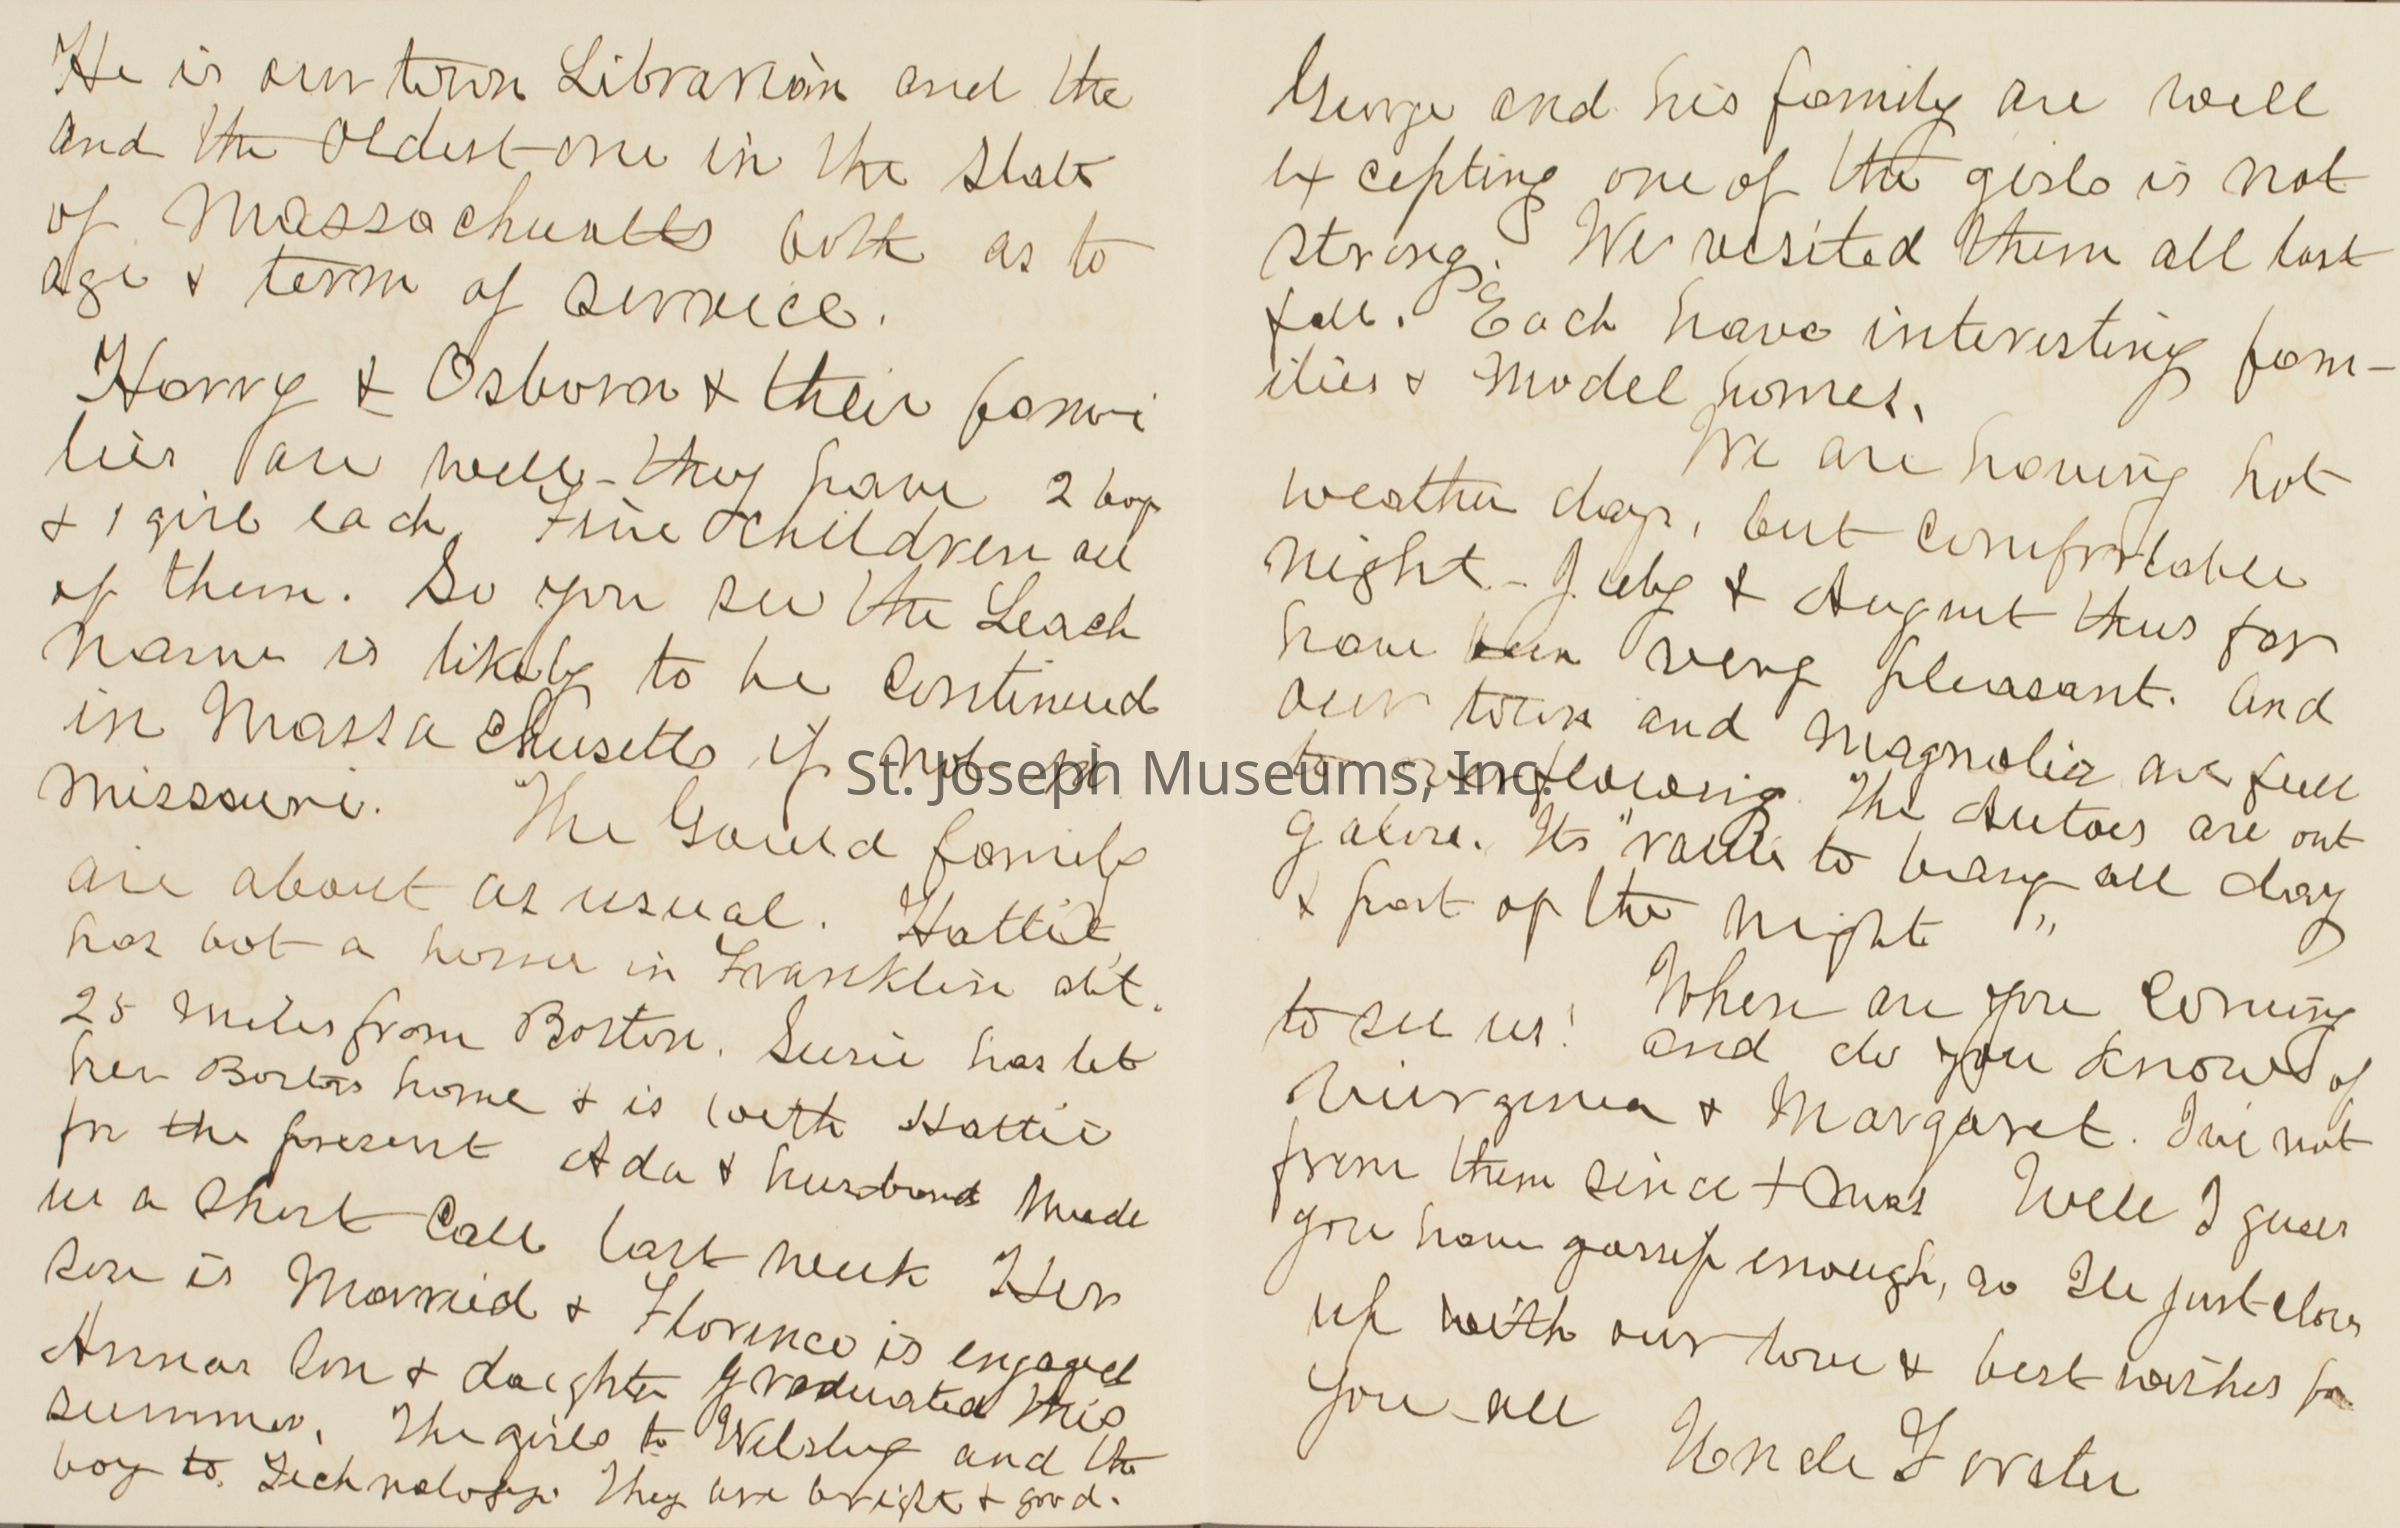 He is our town Librarian and the
and the Oldest one in the State
of Massachusetts both as to
age & term of service.
Harry & Osborn & their fami
lies are well - they have 2 boys
& 1 girl each. Fine children all
of them. So you see the Leach
name is likely to be continued
in Massachusetts if not in
Missouri. The Gould family
are about as usual. Hattie
has bot a home in Franklin abt.
25 miles from Boston. Susie has let
her Boston home & is with Hattie
for the present Ada & husband made
us a short call last week Her
son is Married & Florence is engaged
Annas son & daughter graduated this
summer. The girls to Welsley and the
boy to Technology. They are bright & good.
George and his family are well
excepting one of the girls is not
strong. We visited them all last
fall. Each have interesting fam-
ilies & Model homes.
We are having hot
weather days, but comfortable
night - July & August thus far
have been very pleasant. And
our town and Magnolia are full
to overflowing. The Autoes are out
galore. Its " to bang all day
& part of the night "
When are you coming
to see us! and do you know of
Virginia & Margaret. I've not
from them since Xmas Well I guess
you have gossip enough, so Ile just close
up with our love & best wishes for
you all
Uncle Forster
St. Joseph Museums, Inc.